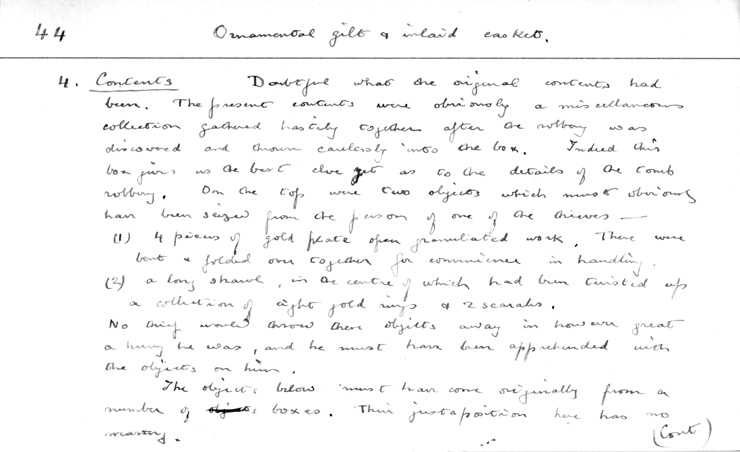 44 Ornamental gilt & inlaid casket.
4. Contents Doubtful what the original contents had
been. The present contents were obviously a miscellaneous
collection gathered hastily together after the robbery was
discovered and thrown carelessly into the box. Indeed this
box gives us the best clue yet as to the details of the tomb
robbery. On the top were two objects which must obviously
have been seized from the person of one of the thieves —
(1) 4 pieces of gold plate open granulated work. These were
bent & folded over together for convenience in handling.
(2) a long shawl, in the centre of which had been twisted up
a collection of eight gold rings & 2 scarabs.
No thief would throw these objects away in however great
a hurry he was, and he must have been apprehended with
the objects on him.
The objects below must have come originally from a
number of boxes. Their justaposition here has no
meaning. (Cont)